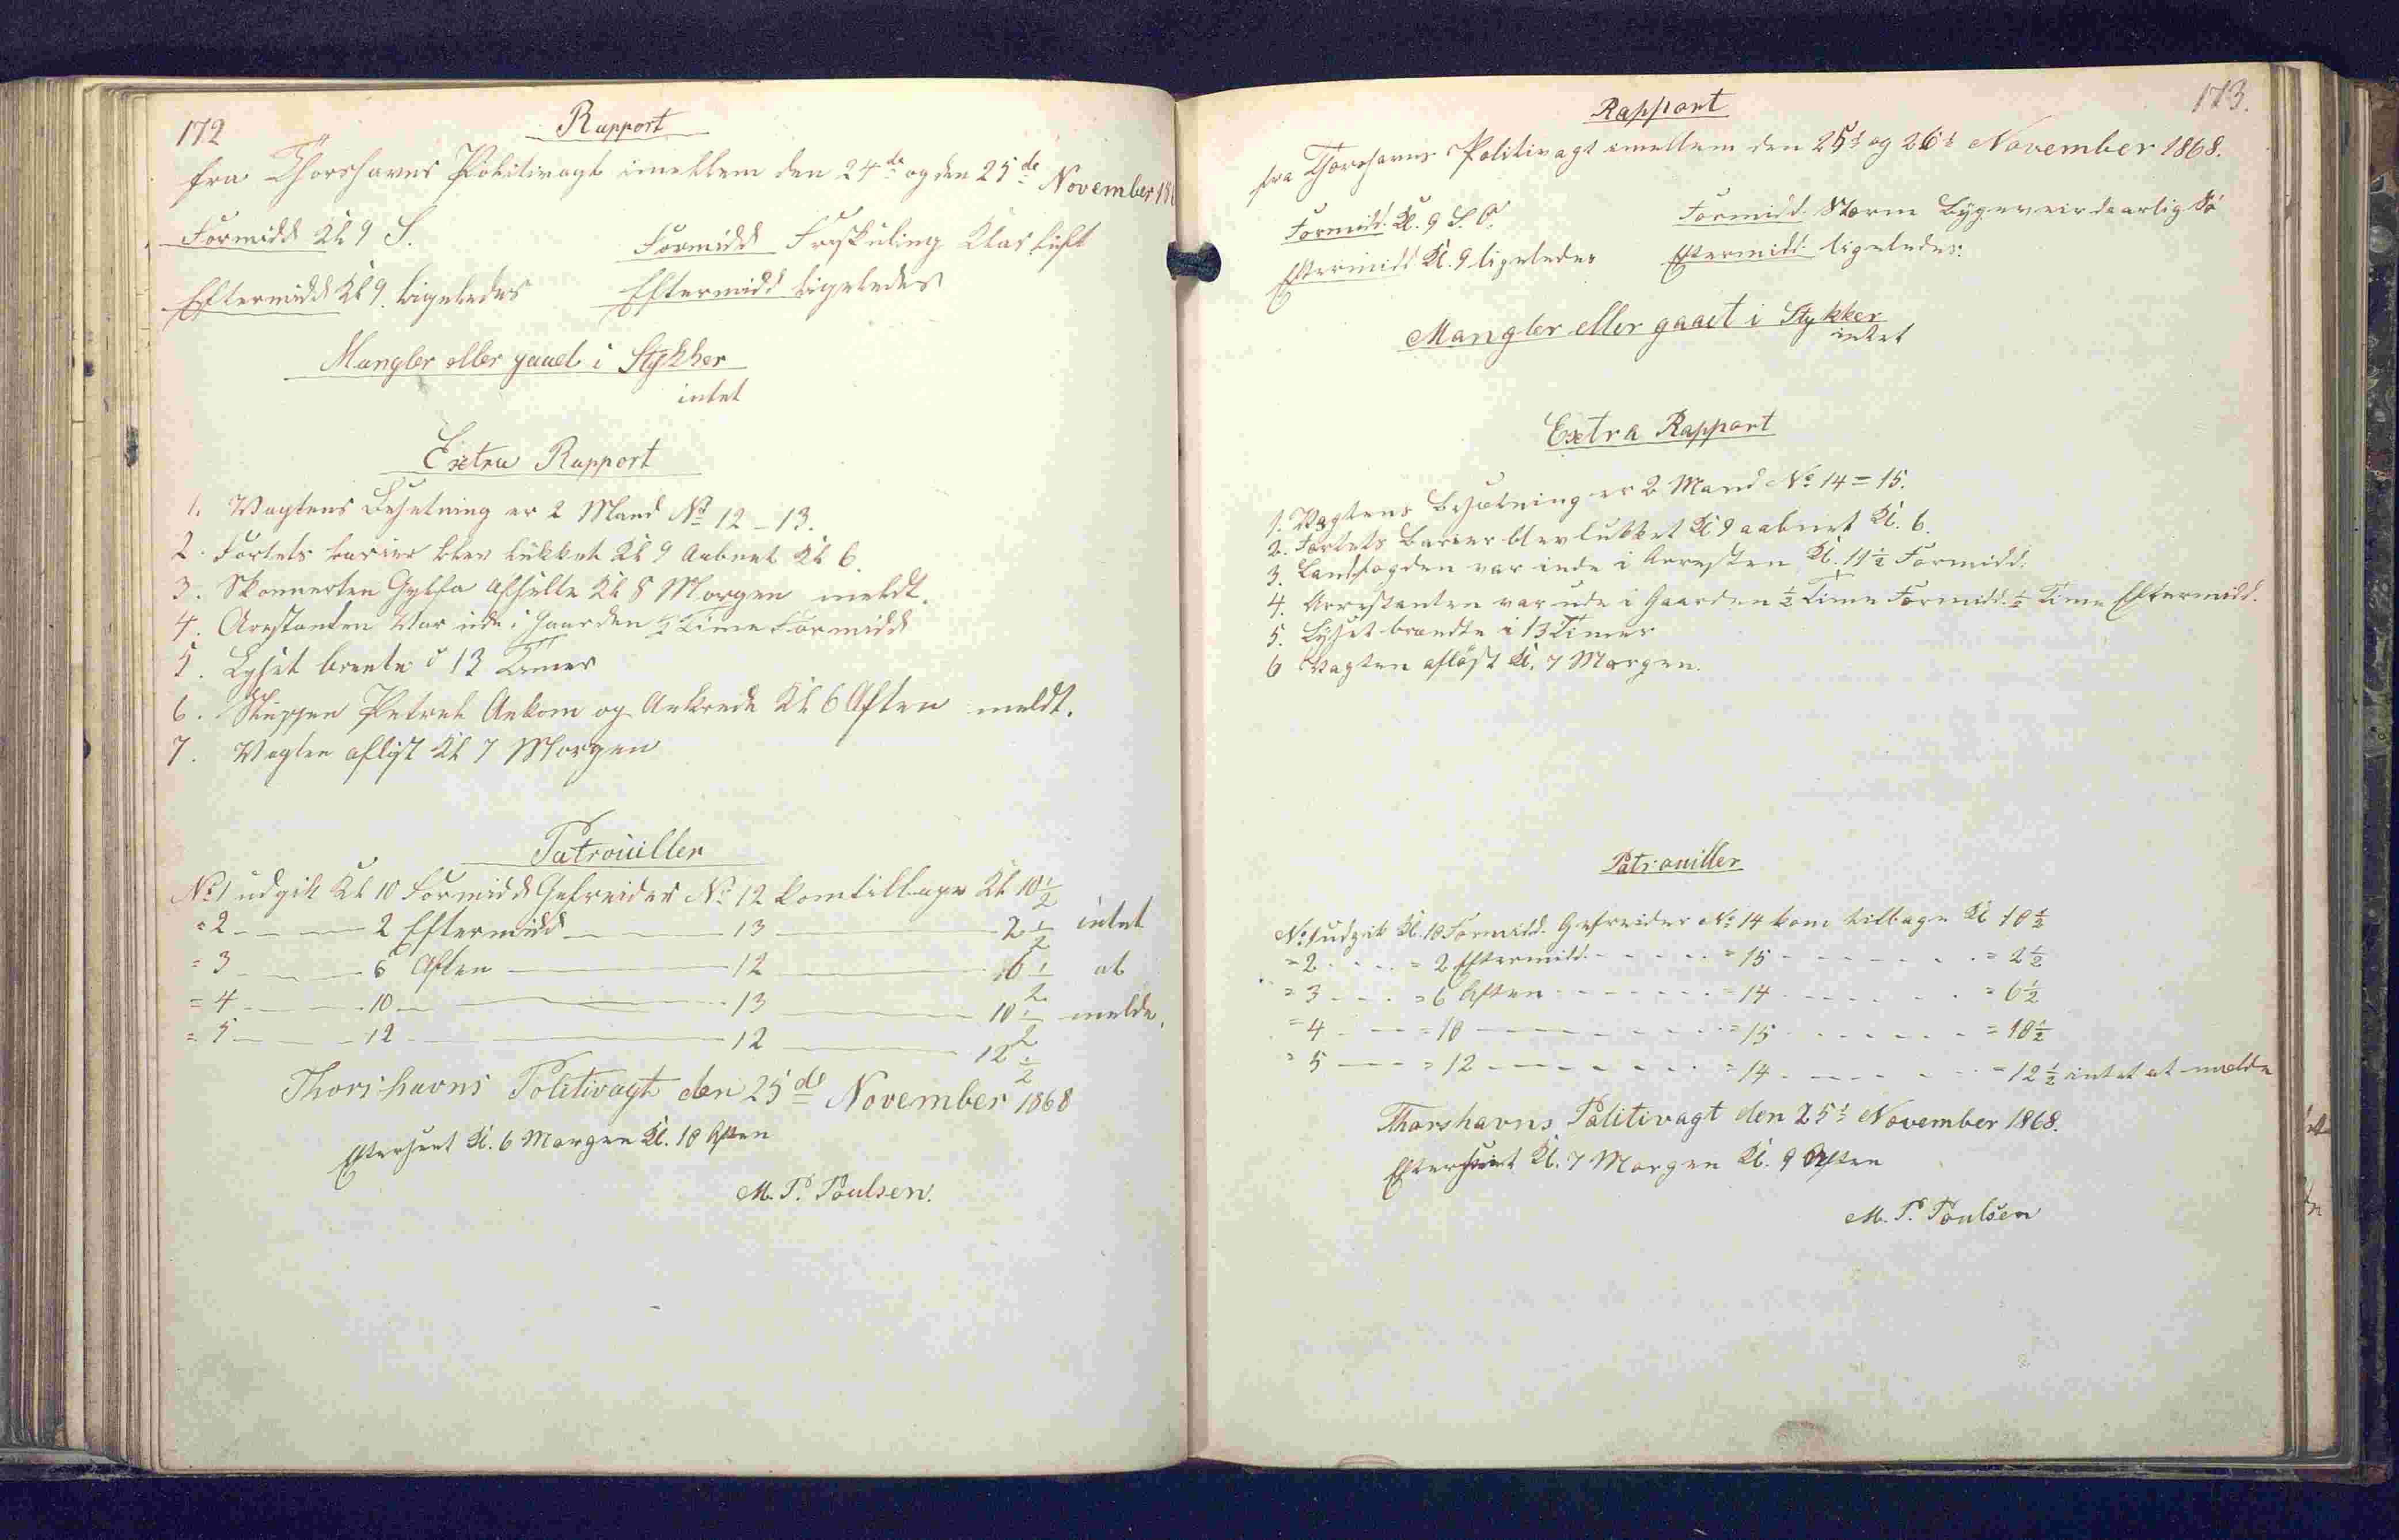 172
Rapport
fra Thorshavns Politivagt imellem den 24de og den 25de November 18
Formidd Kl 9 S. Formidd Friskuling Klar luft
Eftermidd Kl 9 ligeledes Eftermidd ligeledes
Mangler eller gaaet i Stykker
intet
Extra Rapport
1. Vagtens Besetning er 2 Mand No 12 – 13.
2. Fortets barier blev lukket Kl 9 Aabnet Kl 6.
3. Skonnerten Gylfa afseilte Kl 8 Morgen meldt.
4. Arestanten var ude i Gaarden ½ Time Formidd
5. Lyset brente i 13 Timer
6. Sluppen Petrel Ankom og Ankrede Kl 6 Aften meldt.
7. Vagten afløst Kl 7 Morgen
Patrouiller
No 1 udgik Kl 10 Formidd Gefreider No 12 kom tilbage Kl 10½
= 2 — — 2 Eftermidd — 13 — 2½ intet
= 3 — — 6 Aften — 12 — 6½ at
= 4 — — 10 — — 13 — 10½ melde.
= 5 — — 12 — — 12 — 12½
Thorshavns Politivagt den 25de November 1868
Efterseet Kl. 6 Morgen Kl. 10 Aften
M. P. Poulsen.
173.
Rapport
fra Thorshavns Politivagt imellem den 25d og 26d November 1868.
Formidd. Kl. 9 S.O. Formidd. Storm Bygeveir daarlig Sø
Eftermidd Kl. 9 ligeledes Eftermidd. ligeledes.
Mangler eller gaaet i Stykker
intet
Extra Rapport
1. Vagtens Besætning er 2 Mand No 14 = 15.
2. Fortets Barier blev lukket Kl 9 aabnet Kl. 6.
3. Landfogden var inde i Arresten Kl. 11½ Formidd.
4. Arrestanten var ude i Gaarden ½ Time Formidd. ½ Time Eftermidd.
5. Lyset brændte i 13 Timer
6 Vagten afløst Kl. 7 Morgen.
Patrouiller
No 1 udgik Kl. 10 Formidd. Gefreider No 14 kom tilbage Kl 10½
= 2 - - - = 2 Eftermidd. - - - = 15 - - - = 2½
= 3 - - - = 6 Aften - - - = 14 - - - = 6½
= 4 - - - = 10 - - - = 15 - - - = 10½
= 5 - - - = 12 - - - = 14 - - - = 12½ intet at melde
Thorshavns Politivagt den 25d November 1868.
Efterseet Kl. 7 Morgen Kl. 9 Aften
M. P. Poulsen